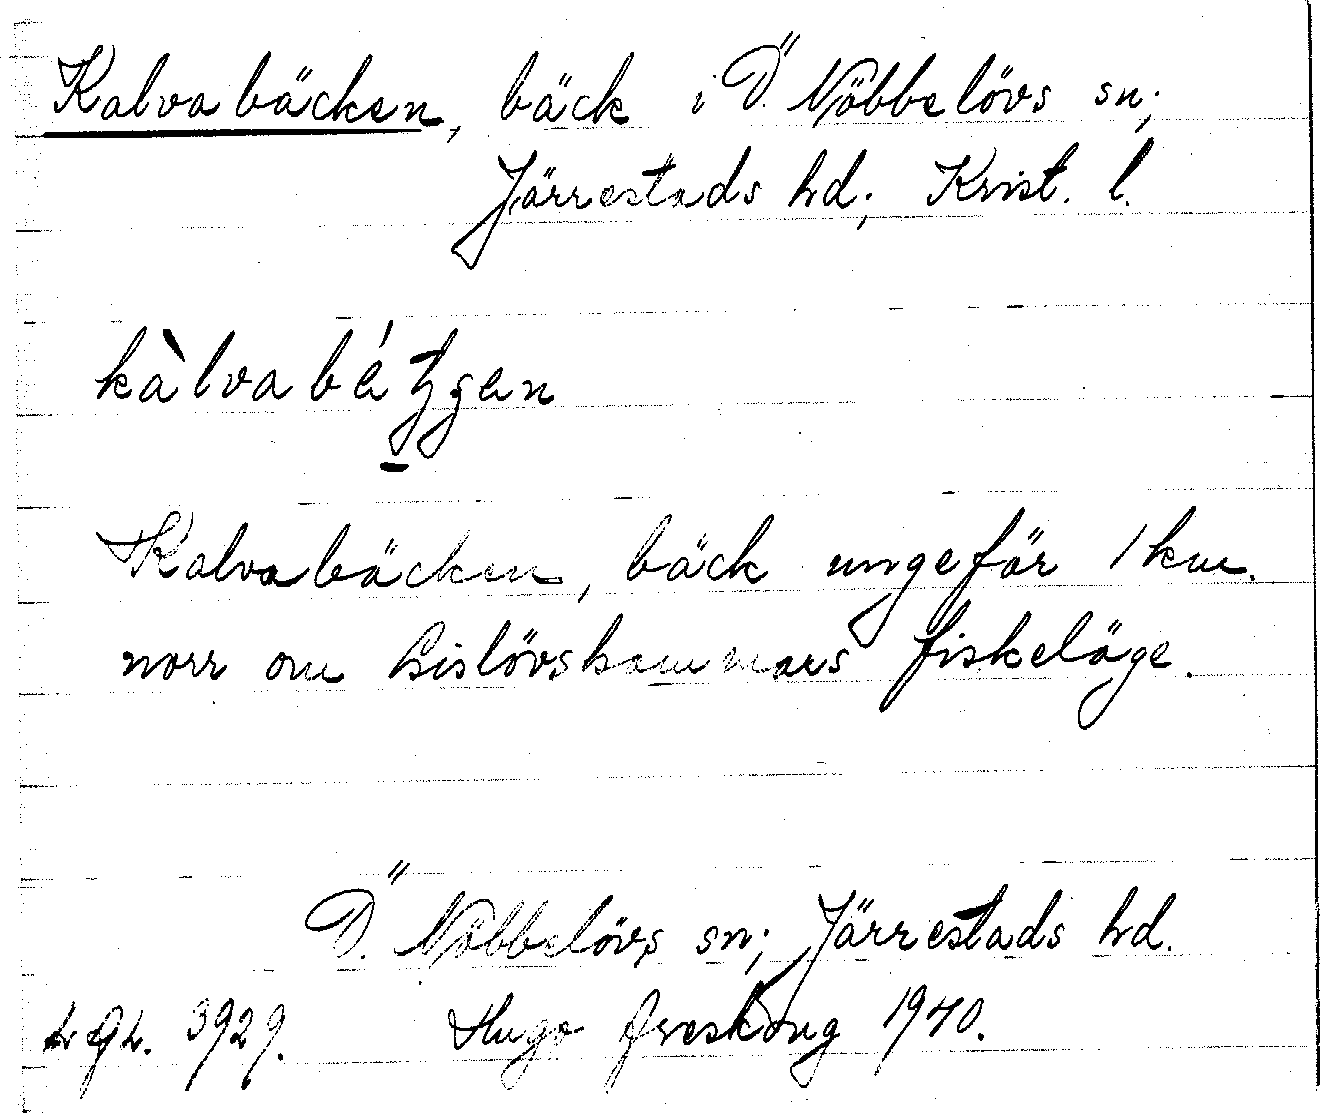 Kalvabäcken, bäck i Ö. Nöbbelövs sn;
Järrestads hd; Krist. l.
kàlvabétʒen
Kalvabäcken, bäck ungefär 1 km.
norr om Kislövshammars fiskeläge.
Ö. Nöbbelövs sn; Järrestads hd.
3929. Hugo Areskoug 1940.